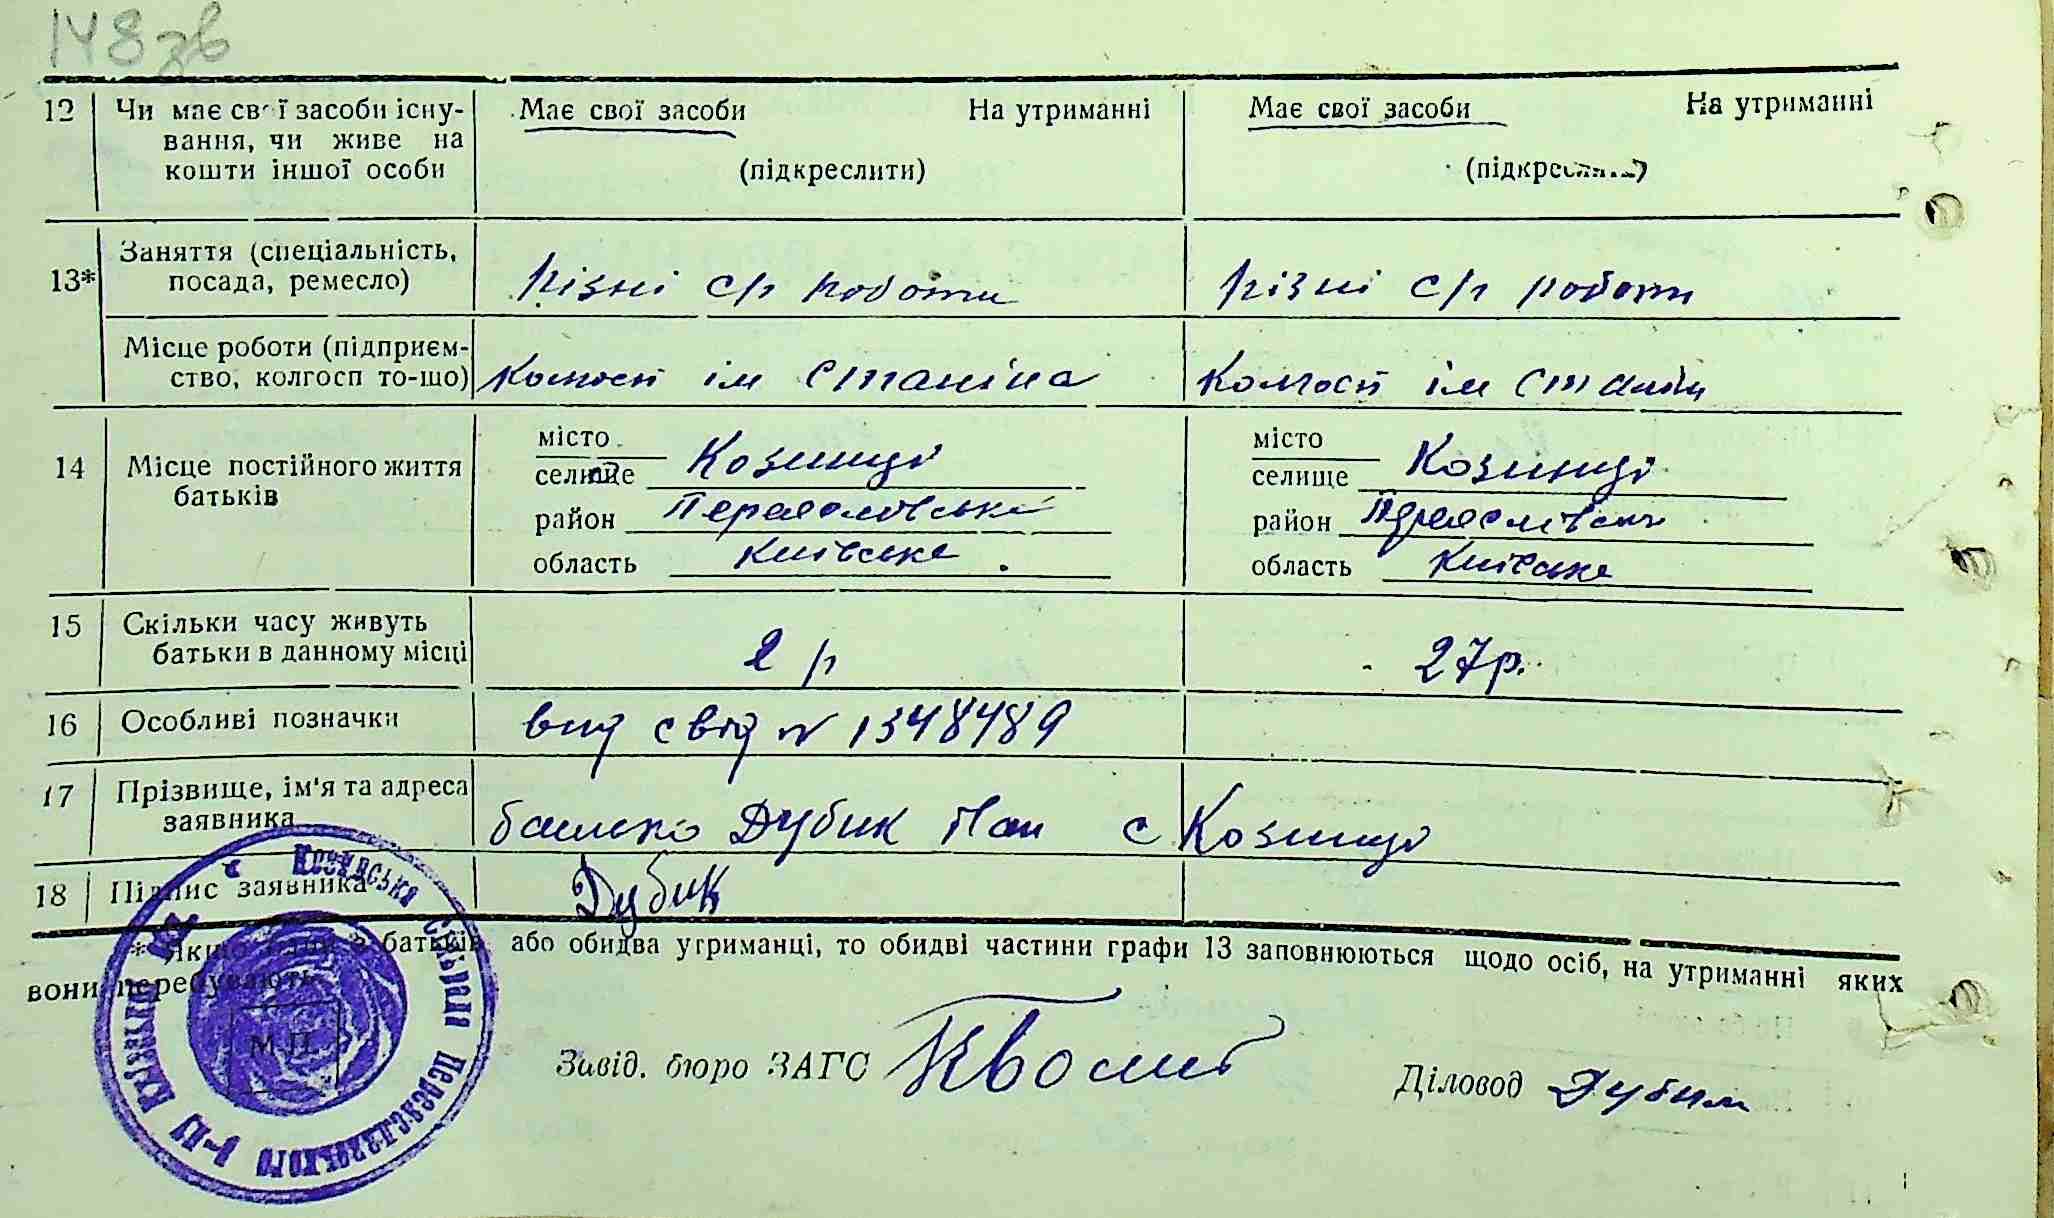 148 зв
12 Чи має свої засоби існу- Має свої засоби На утриманні Має свої засоби На утриманні
вання, чи живе на
кошти іншої особи (підкреслити) (підкреслити)
Заняття (спеціальність,
13* посада, ремесло) різні с/г роботи різні с/г роботи
Місце роботи (підприєм-
ство, колгосп то-що) Колгосп ім Сталіна Колгосп ім Сталіна
місто місто
14 Місце постійного життя селище Козинці селище Козинці
батьків район Переяславський район Переяславськ
область Київська область Київська
15 Скільки часу живуть
батьки в данному місці 2 р 27 р.
16 Особливі позначки вид свід № 1348489
17 Прізвище, ім'я та адреса
заявника батько Дубик Іван с Козинці
18 Підпис заявника Дубик
* Якщо один з батьків або обидва утриманці, то обидві частини графи 13 заповнюються щодо осіб, на утриманні яких
вони перебувають
М.П.
Завід. бюро ЗАГС Діловод
сільрада Переяславського р-ну Київської